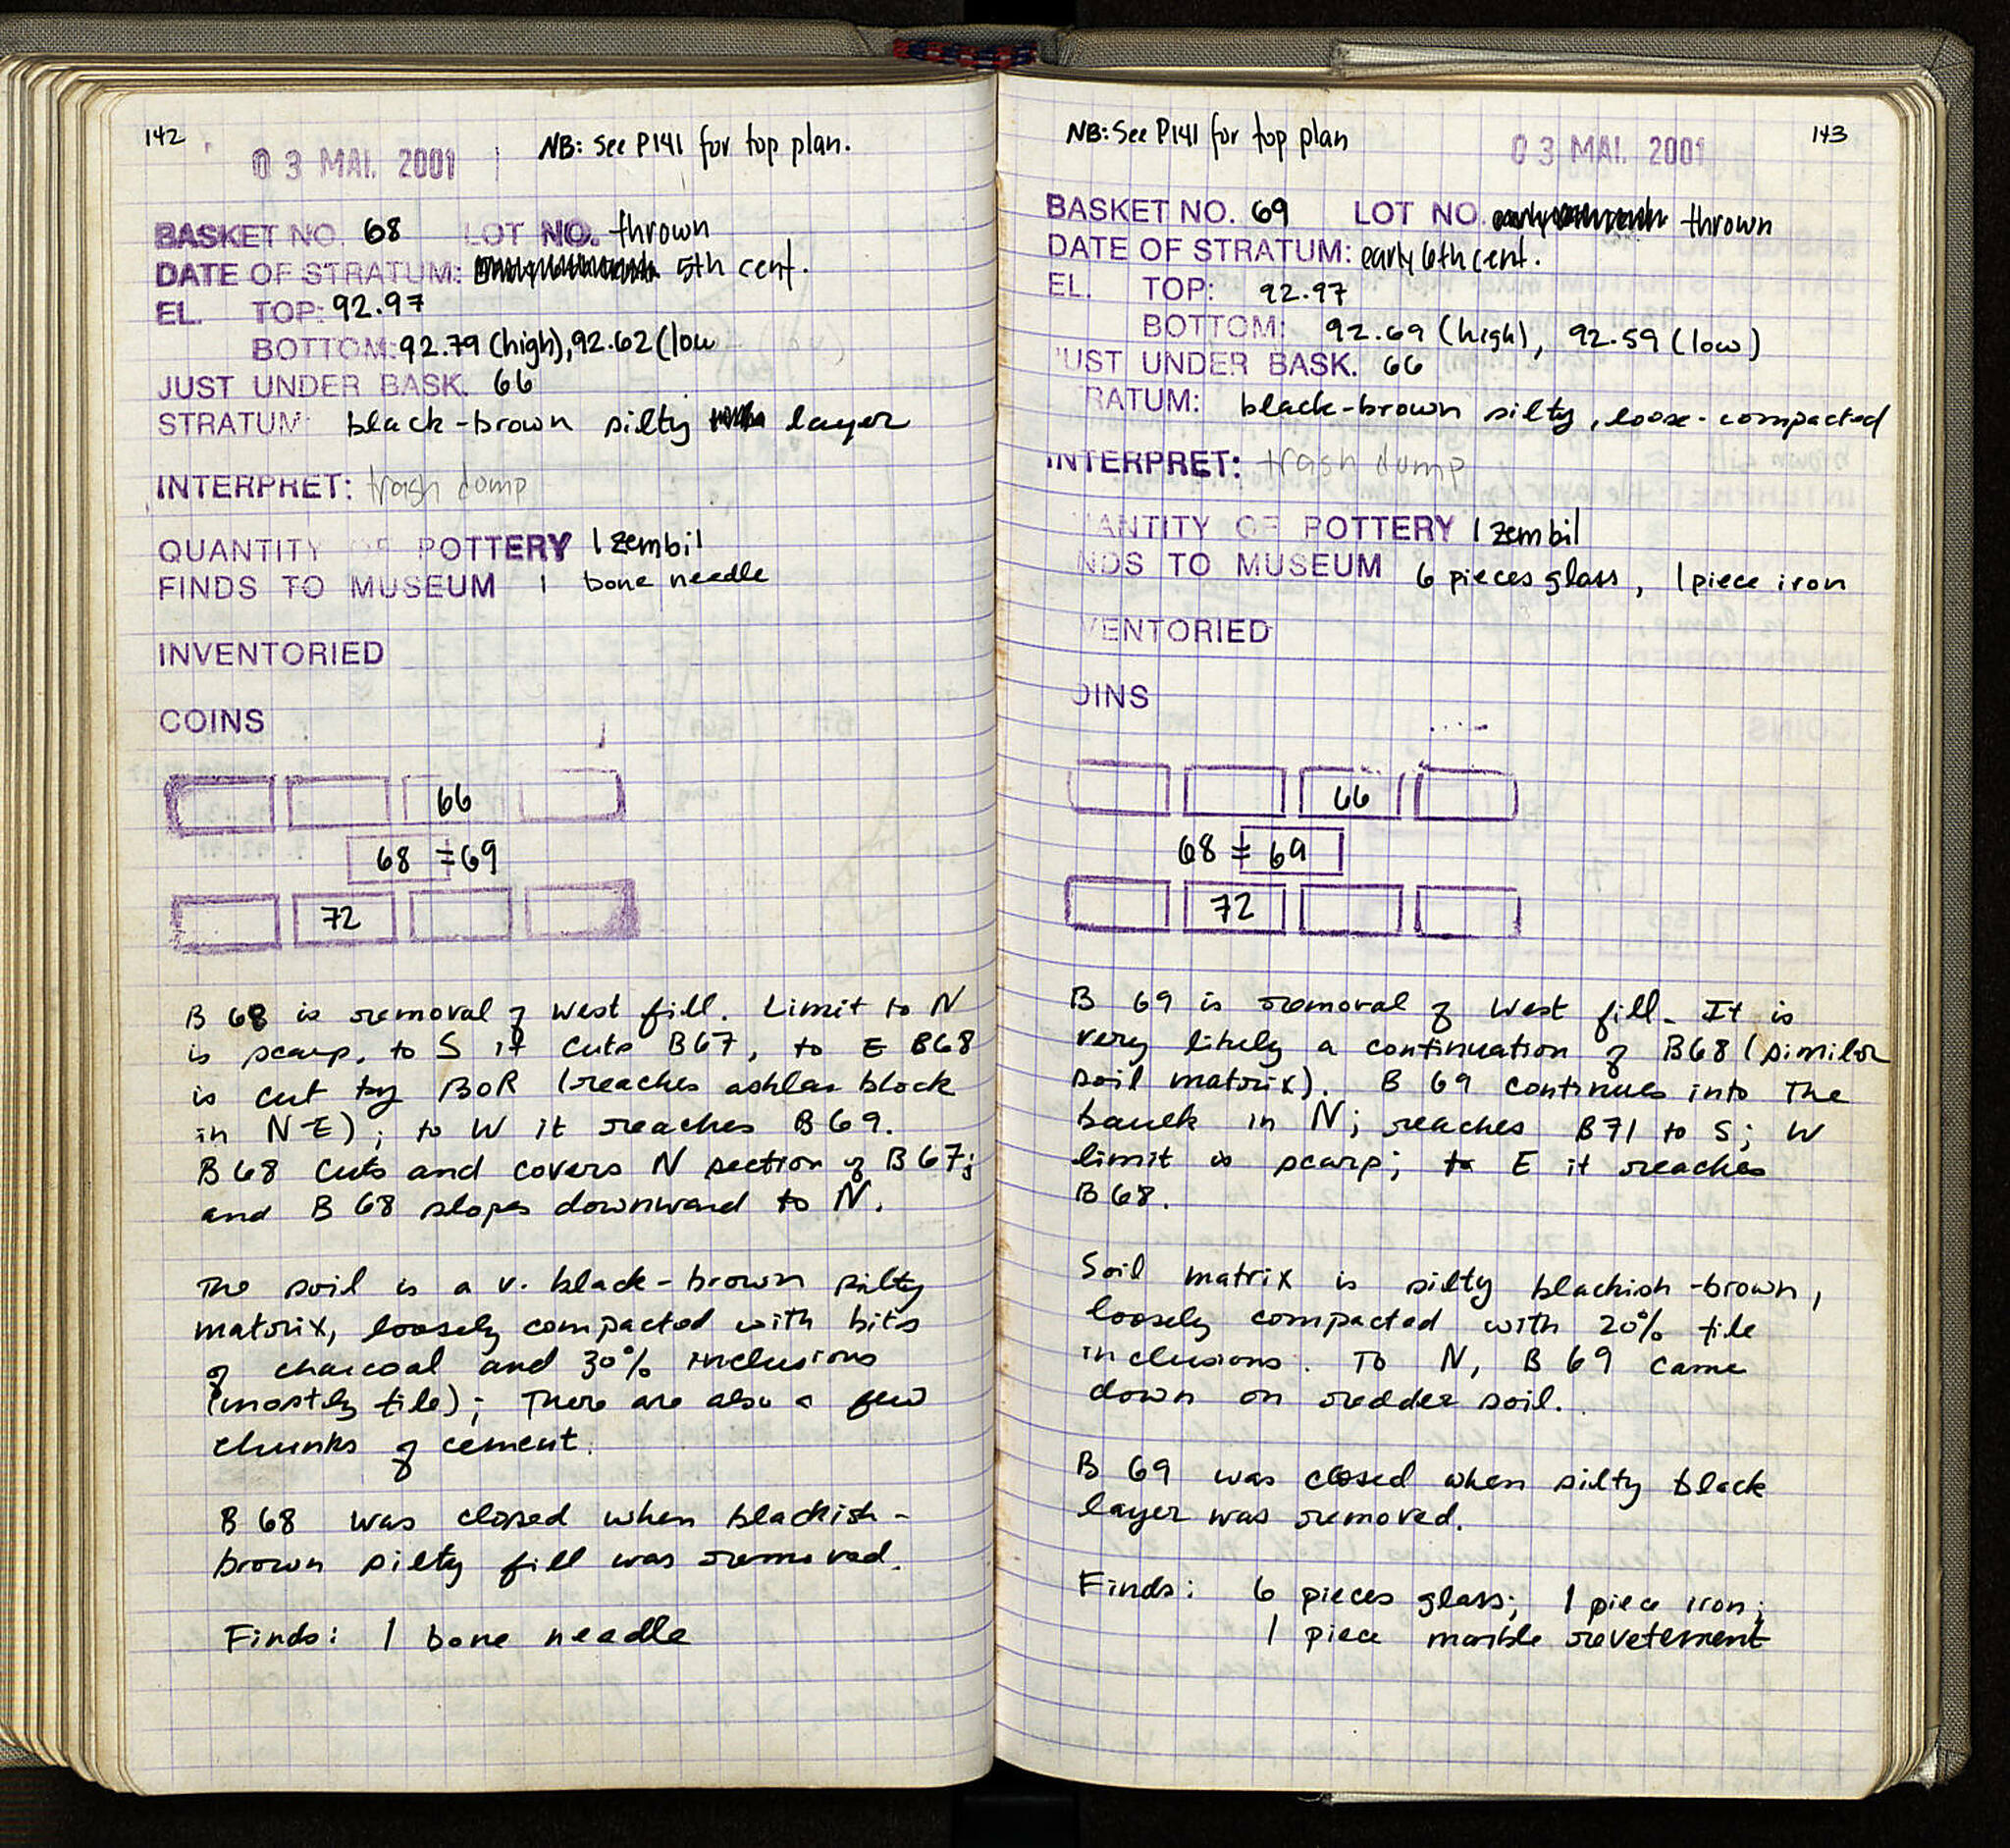 142
03 MAI. 2001
NB: See P141 for top plan.
BASKET NO. 68 LOT NO. thrown
DATE OF STRATUM: 5th cent.
EL. TOP: 92.97
BOTTOM: 92.79 (high), 92.62 (low
JUST UNDER BASK. 66
STRATUM: black-brown silty layer
INTERPRET: trash dump
QUANTITY OF POTTERY 1 zembil
FINDS TO MUSEUM 1 bone needle
INVENTORIED
COINS
66
68 = 69
72
B 68 is removal of west fill. Limit to N
is scarp, to S it cuts B67, to E B68
is cut by BOR (reaches ashlar block
in NE); to W it reaches B69.
B68 cuts and covers N section of B67;
and B 68 slopes downward to N.
The soil is a v. black-brown silty
matrix, loosely compacted with bits
of charcoal and 30% inclusions
(mostly tile); There are also a few
chunks of cement.
B 68 was closed when blackish-
brown silty fill was removed.
Finds: 1 bone needle
NB: See P141 for top plan
03 MAI. 2001
143
BASKET NO. 69 LOT NO. thrown
DATE OF STRATUM: early 6th cent.
EL. TOP: 92.97
BOTTOM: 92.69 (high), 92.59 (low)
UST UNDER BASK. 66
RATUM: black-brown silty, loose-compacted
INTERPRET: trash dump
ANTITY OF POTTERY 1 zembil
NDS TO MUSEUM 6 pieces glass, 1 piece iron
VENTORIED
OINS
66
68 = 69
72
B 69 is removal of West fill. It is
very likely a continuation of B68 (similar
soil matrix). B 69 continues into the
baulk in N; reaches B71 to S; W
limit is scarp; to E it reaches
B68.
Soil matrix is silty blackish-brown,
loosely compacted with 20% tile
inclusions. To N, B 69 came
down on redder soil.
B 69 was closed when silty black
layer was removed.
Finds: 6 pieces glass; 1 piece iron;
1 piece marble revetement